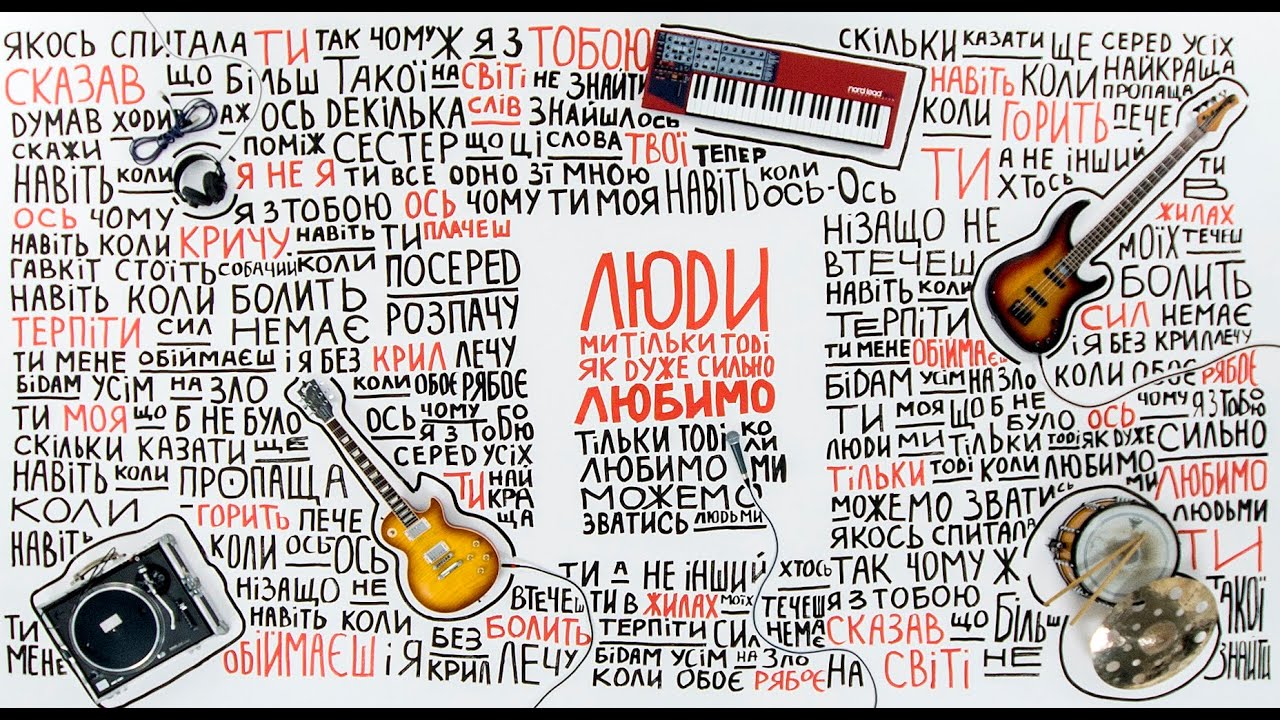 ЯКОСЬ СПИТАЛА ТИ ТАК ЧОМУ Ж Я З ТОБОЮ
СКАЗАВ ЩО БІЛЬШ ТАКОЇ НА СВІТІ НЕ ЗНАЙТИ
ДУМАВ ОСЬ ДЕКІЛЬКА СЛІВ ЗНАЙШЛОСЬ
СКАЖИ ПОМІЖ СЕСТЕР ЩО ЦІ СЛОВА ТВОЇ ТЕПЕР
НАВІТЬ КОЛИ Я НЕ Я ТИ ВСЕ ОДНО ЗІ МНОЮ НАВІТЬ КОЛИ ОСЬ-ОСЬ
ОСЬ ЧОМУ Я З ТОБОЮ ОСЬ ЧОМУ ТИ МОЯ
НАВІТЬ КОЛИ КРИЧУ НАВІТЬ ТИ ПЛАЧЕШ
ГАВКІТ СТОЇТЬ СОБАЧИЙ КОЛИ ПОСЕРЕД
НАВІТЬ КОЛИ БОЛИТЬ РОЗПАЧУ
ТЕРПІТИ СИЛ НЕМАЄ
ТИ МЕНЕ ОБІЙМАЄШ І Я БЕЗ КРИЛ ЛЕЧУ
БІДАМ УСІМ НА ЗЛО КОЛИ ОБОЄ РЯБОЄ
ТИ МОЯ ЩО Б НЕ БУЛО ОСЬ ЧОМУ Я З ТОБОЮ
СКІЛЬКИ КАЗАТИ ЩЕ СЕРЕД УСІХ
НАВІТЬ КОЛИ ПРОПАЩА ТИ НАЙКРАЩА
КОЛИ ГОРИТЬ ПЕЧЕ
НАВІТЬ КОЛИ ОСЬ-ОСЬ
НІЗАЩО НЕ ВТЕЧЕШ
НАВІТЬ КОЛИ БОЛИТЬ
ТИ МЕНЕ ОБІЙМАЄШ І Я БЕЗ КРИЛ ЛЕЧУ
ЛЮДИ
МИ ТІЛЬКИ ТОДІ
ЯК ДУЖЕ СИЛЬНО
ЛЮБИМО
ТІЛЬКИ ТОДІ КОЛИ
ЛЮБИМО МИ
МОЖЕМО
ЗВАТИСЬ ЛЮДЬМИ
ТИ А НЕ ІНШИЙ ХТОСЬ
ТИ В ЖИЛАХ МОЇХ ТЕЧЕШ
ТЕРПІТИ СИЛ НЕМАЄ
БІДАМ УСІМ НА ЗЛО
КОЛИ ОБОЄ РЯБОЄ НА
СКІЛЬКИ КАЗАТИ ЩЕ СЕРЕД УСІХ
НАВІТЬ КОЛИ НАЙКРАЩА ПРОПАЩА
КОЛИ ГОРИТЬ ПЕЧЕ
ТИ А НЕ ІНШИЙ ХТОСЬ ТИ В
НІЗАЩО НЕ ЖИЛАХ
ВТЕЧЕШ МОЇХ ТЕЧЕШ
НАВІТЬ КОЛИ БОЛИТЬ
ТЕРПІТИ СИЛ НЕМАЄ
ТИ МЕНЕ ОБІЙМАЄШ І Я БЕЗ КРИЛ ЛЕЧУ
БІДАМ УСІМ НА ЗЛО КОЛИ ОБОЄ РЯБОЄ
ТИ МОЯ ЩО Б НЕ БУЛО ОСЬ ЧОМУ Я З ТОБОЮ
ЛЮДИ МИ ТІЛЬКИ ТОДІ ЯК ДУЖЕ СИЛЬНО
ТІЛЬКИ ТОДІ КОЛИ ЛЮБИМО МИ ЛЮБИМО
МОЖЕМО ЗВАТИСЬ ЛЮДЬМИ
ЯКОСЬ СПИТАЛА ТИ
ТАК ЧОМУ Ж
Я З ТОБОЮ
СКАЗАВ ЩО БІЛЬШ ТАКОЇ
СВІТІ НЕ ЗНАЙТИ
nord lead